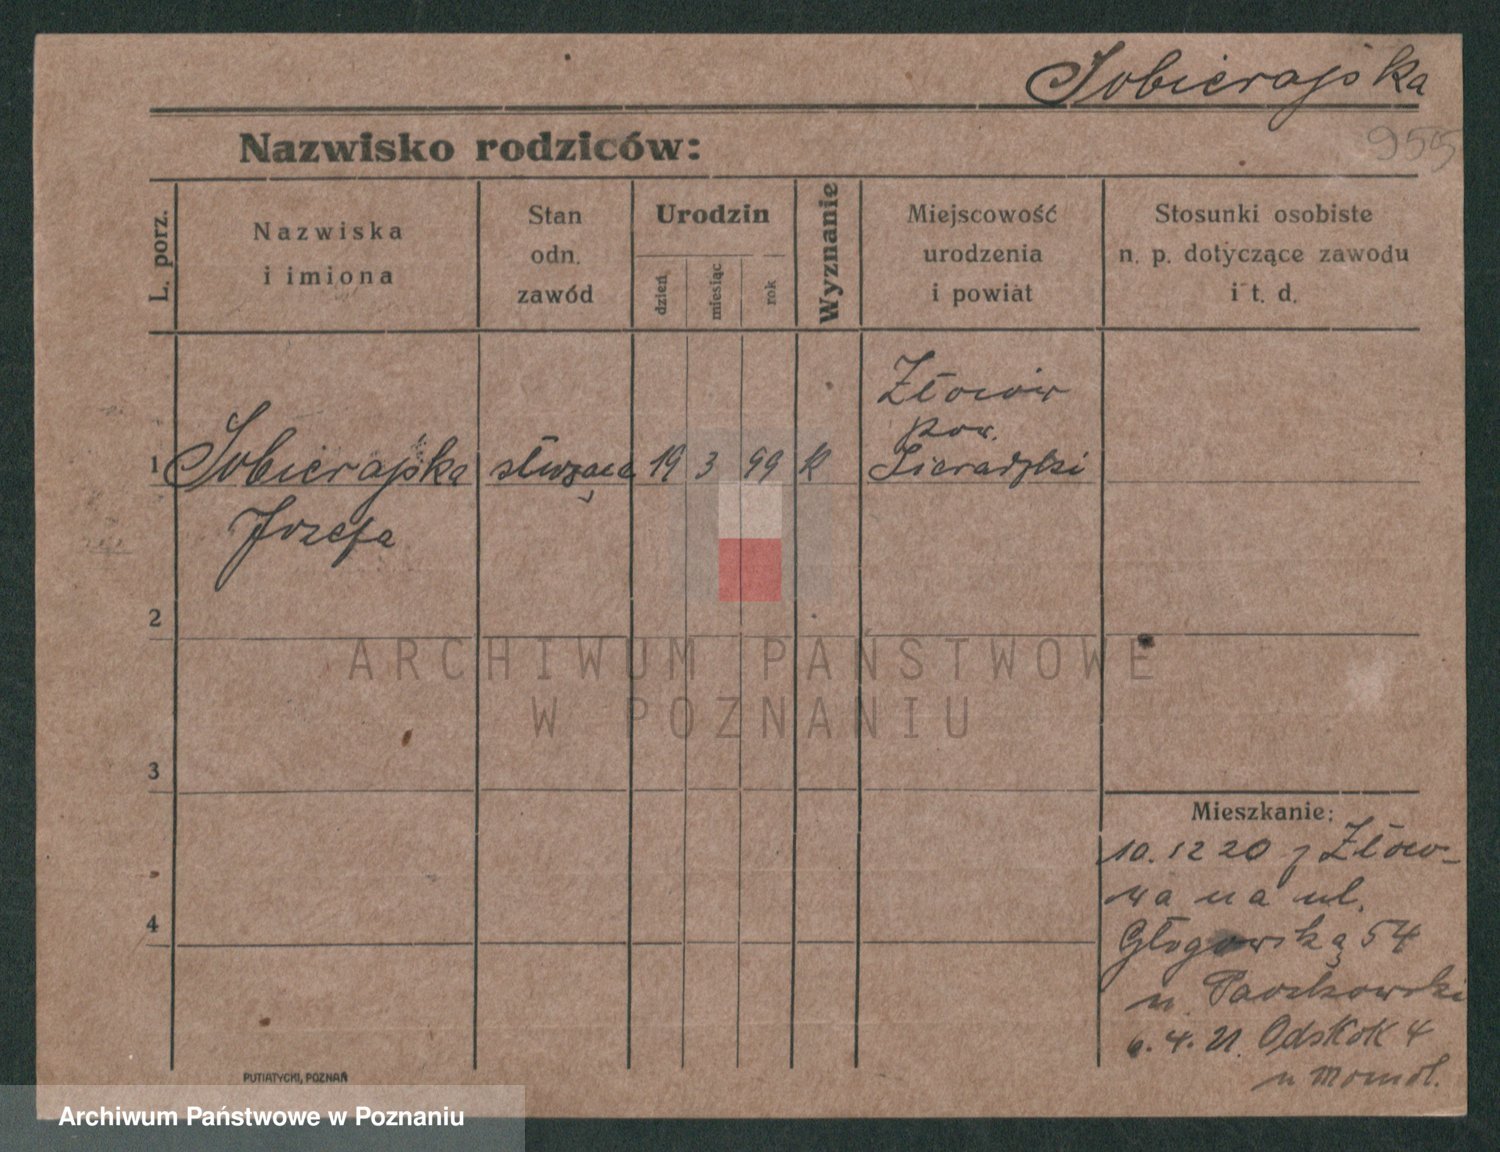 Sobierajska
955
Nazwisko rodziców:
L. porz.
Nazwiska
i imiona
Stan
odn.
zawód
Urodzin
dzień
miesiąc
rok
Wyznanie
Miejscowość
urodzenia
i powiat
Stosunki osobiste
n. p. dotyczące zawodu
i t. d.
Złoców
pow.
1 Sobierajska służąca 19 3 99 k Sieradzki
Józefa
2
ARCHIWUM PAŃSTWOWE
W POZNANIU
3
Mieszkanie:
10.12 20 z Złoco-
wa na ul.
4
Głogowską 54
u
6.4.21. Odskok 4
u
PUTIATYCKI, POZNAŃ
Archiwum Państwowe w Poznaniu